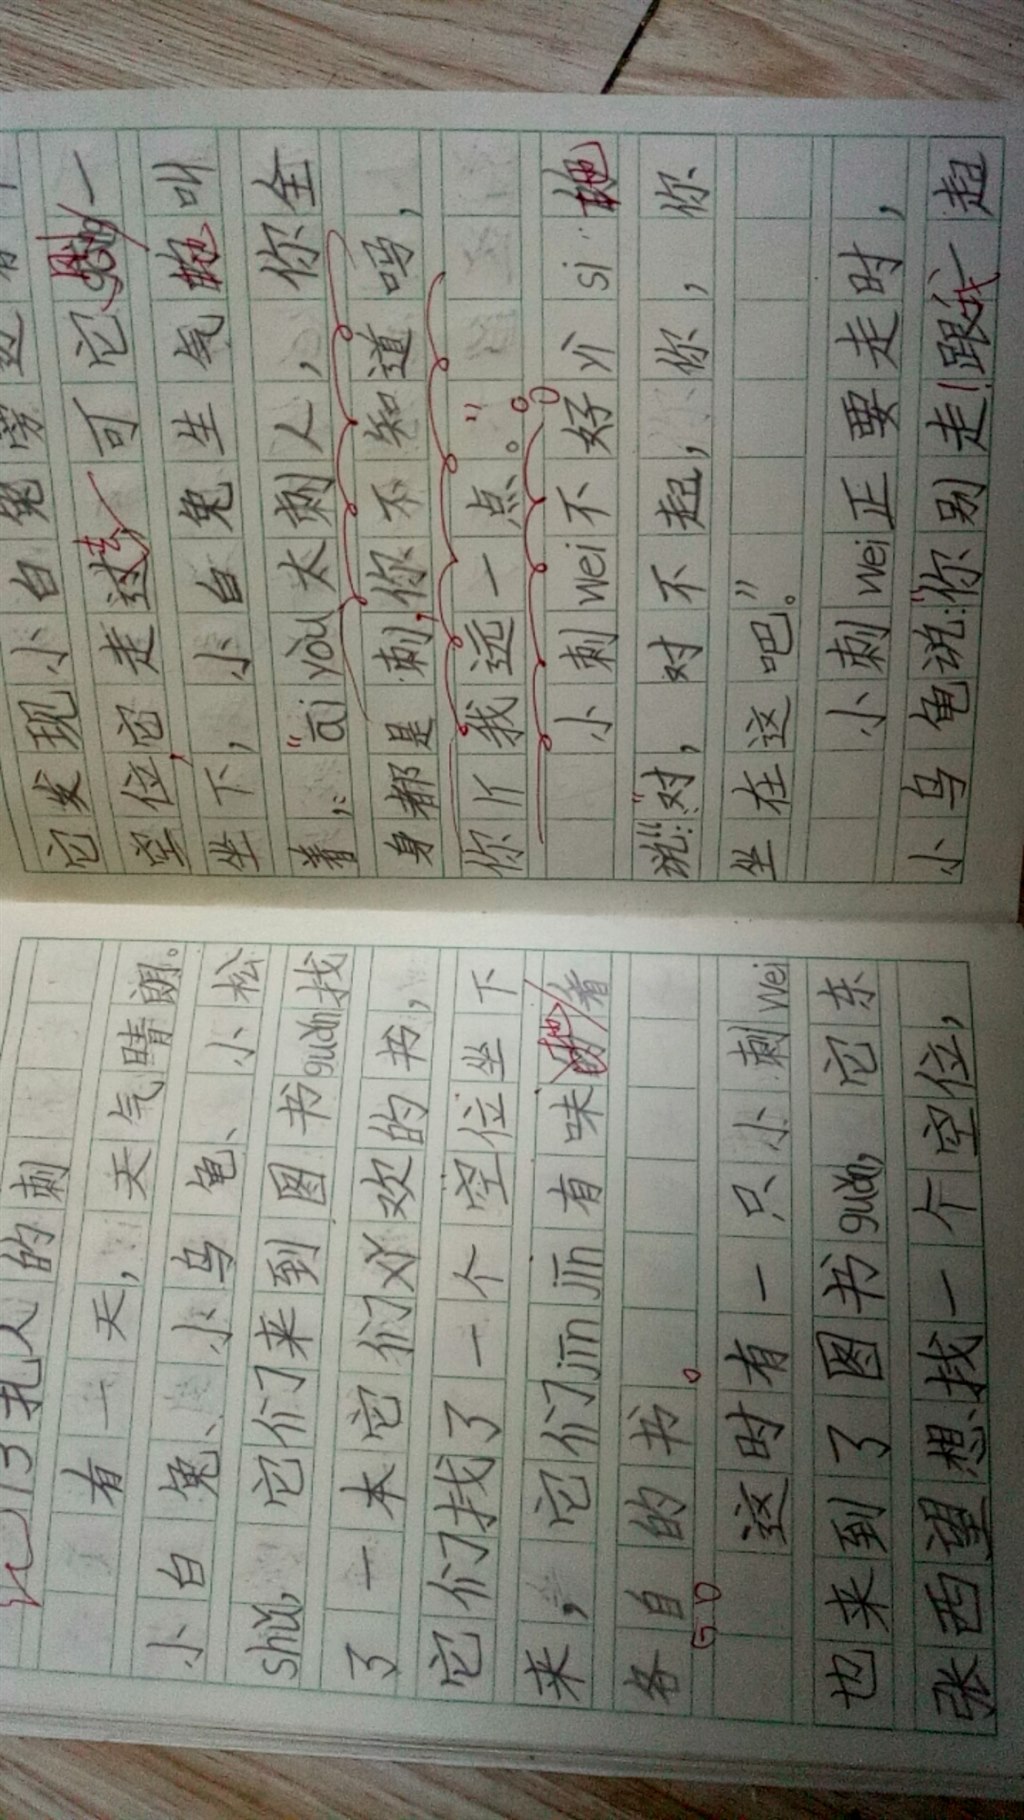 扎人的刺
有一天，天气晴朗。
小白兔、小乌龟、小松
shǔ，它们来到图书guǎn找
了一本它们xǐ欢的书，
它们找了一个空位坐下
来，它们jīn jīn有味地看
各自的书。
50
这时有一只小刺wei
也来到了图书guǎn，它东
张西望想找一个空位，
它发现小白兔旁边有
空位，它走过去，可它刚一
坐下，小白兔生气地叫
着，“āi yòu太刺人，你全
身都是刺，你不知道吗，
你lí我远一点。”
小刺wei不好yì si地
说：“对，对不起，你，你
坐在这吧。”
小刺wei正要走时，
小乌龟说：“你别走！跟我一起